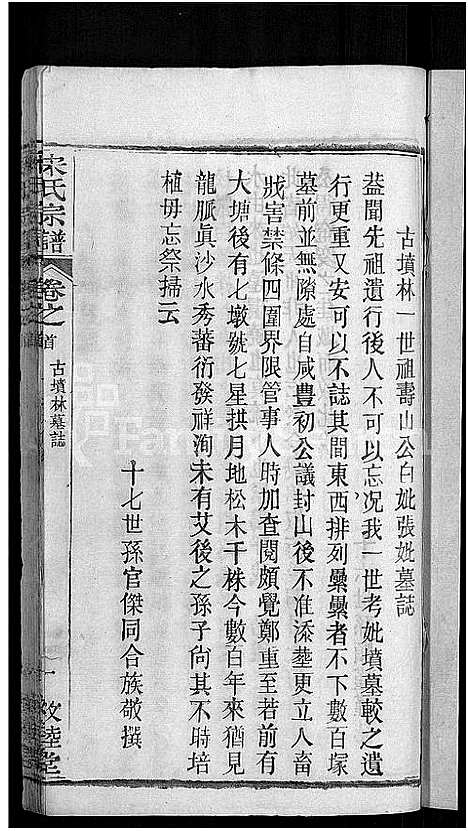 古墳林一世祖壽山公白妣張妣墓誌
葢聞先祖遺行後人不可以忘况我一世考妣墳墓較之遺
行更重又安可以不誌其間東西排列纍纍者不下數百塚
墓前並無隙處自咸豊初公議封山後不准添塟更立人畜
戕害禁條四圍界限管事人時加查閱頗覺鄭重至若前有
大塘後有七墩號七星拱月地松木千株今數百年來猶見
龍脈眞沙水秀蕃衍發祥洵未有艾後之孫子尙其不時培
植毋忘祭掃云
十七世孫官傑同合族敬撰
宋氏宗譜
卷之首
古墳林墓誌
一
敦睦堂